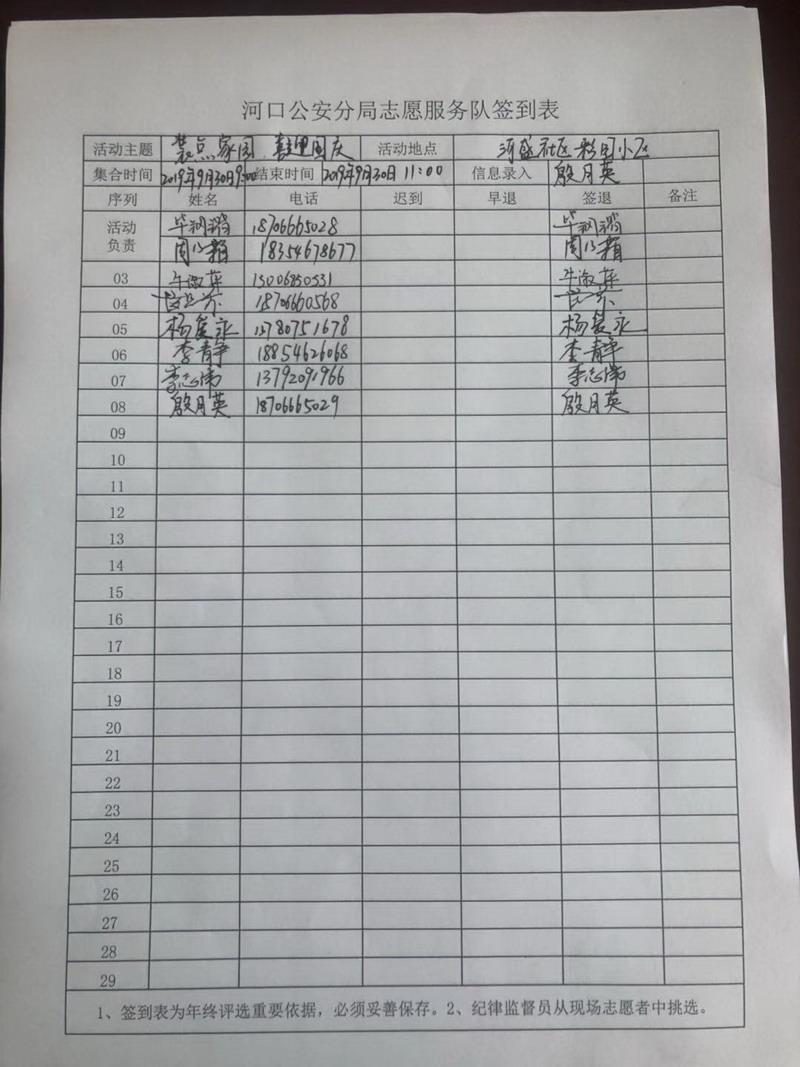 河口公安分局志愿服务队签到表
活动主题 装点家园 喜迎国庆 活动地点 河盛社区彩园小区
集合时间 2019年9月30日9:00 结束时间 2019年9月30日 11:00 信息录入 殷月英
序列 姓名 电话 迟到 早退 签退 备注
活动负责 毕 18706665028 毕
周 18354678677 周
03 牛淑萍 15006850531 牛淑萍
04 18706660568
05 杨爱永 13780751678 杨爱永
06 李静 18854626068 李静
07 李志伟 13792091966 李志伟
08 殷月英 18706665029 殷月英
09
10
11
12
13
14
15
16
17
18
19
20
21
22
23
24
25
26
27
28
29
1、签到表为年终评选重要依据，必须妥善保存。2、纪律监督员从现场志愿者中挑选。